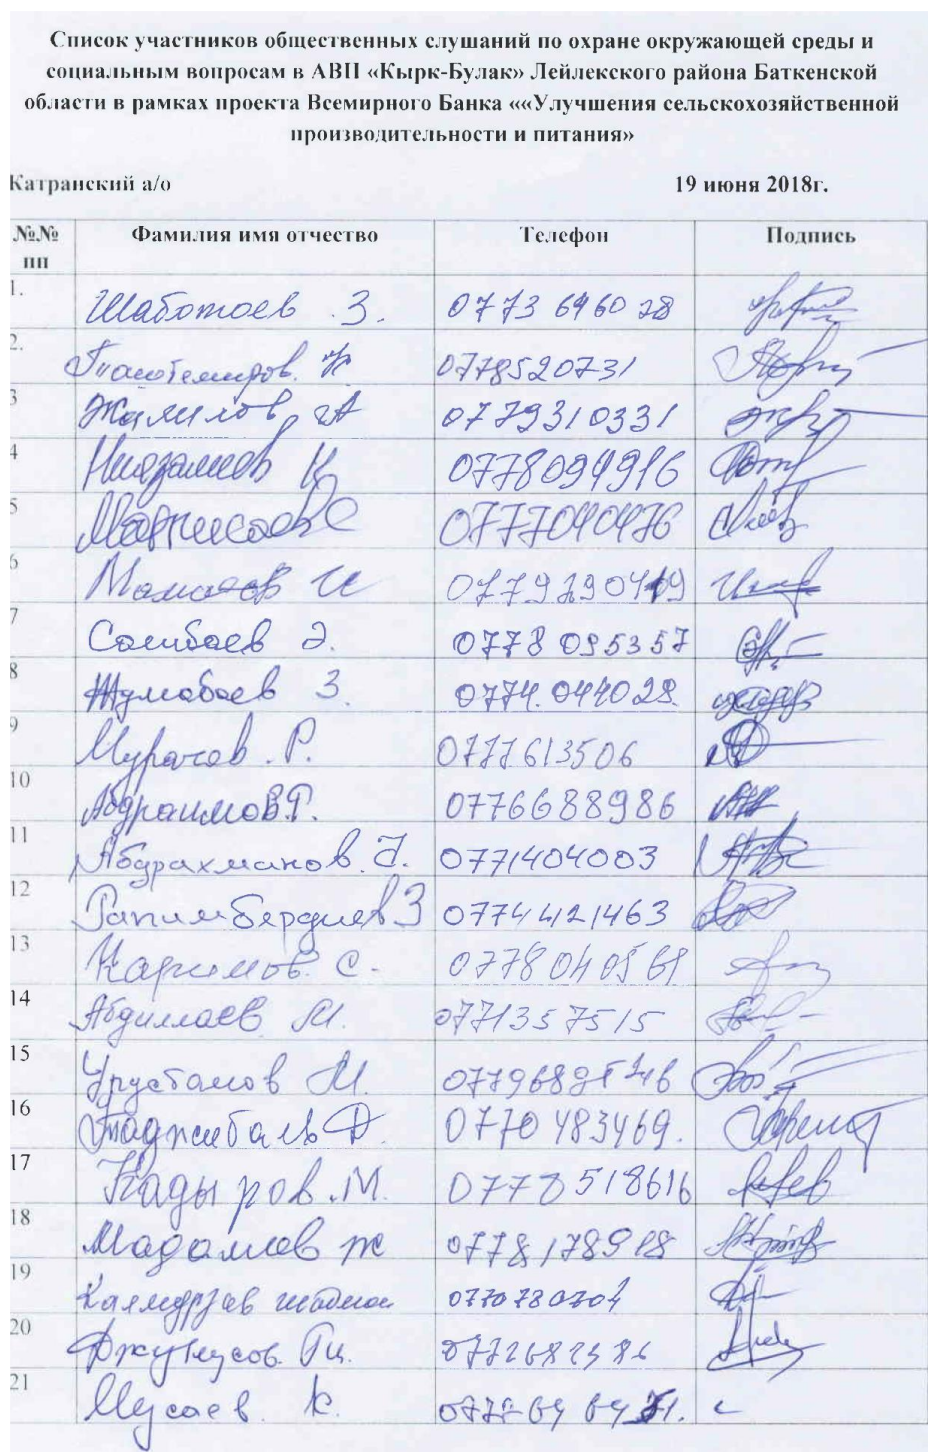 Список участников общественных слушаний по охране окружающей среды и
социальным вопросам в АВП «Кырк-Булак» Лейлекского района Баткенской
области в рамках проекта Всемирного Банка ««Улучшения сельскохозяйственной
производительности и питания»
Катранский а/о 19 июня 2018г.
№№ пп Фамилия имя отчество Телефон Подпись
1. Шаботоев З. 0773 696028
2. 0778520731
3 Жалилов А 0779310331
4 Ниязалиев К 0778094916
5 0777040476
6 Маматов И
7 Солибаев Э. 0778 095357
8 Жумабаев З. 0774.044028.
9 Муратов. Р. 0777613506
10 Абдраимов Г. 0776688986
11 Абдрахманов. 0771404003
12 Рапимбердиев З 0774421463
13 Каримов. С.
14 Абдиллаев М. 0771357515
15 Урустамов М.
16 Таджибаев Д. 0770 483469.
17 Кадыров. М. 0778518616
18 Мадалиев ж 0778178918
19
20 Джунусов.
21 Мусаев. К.